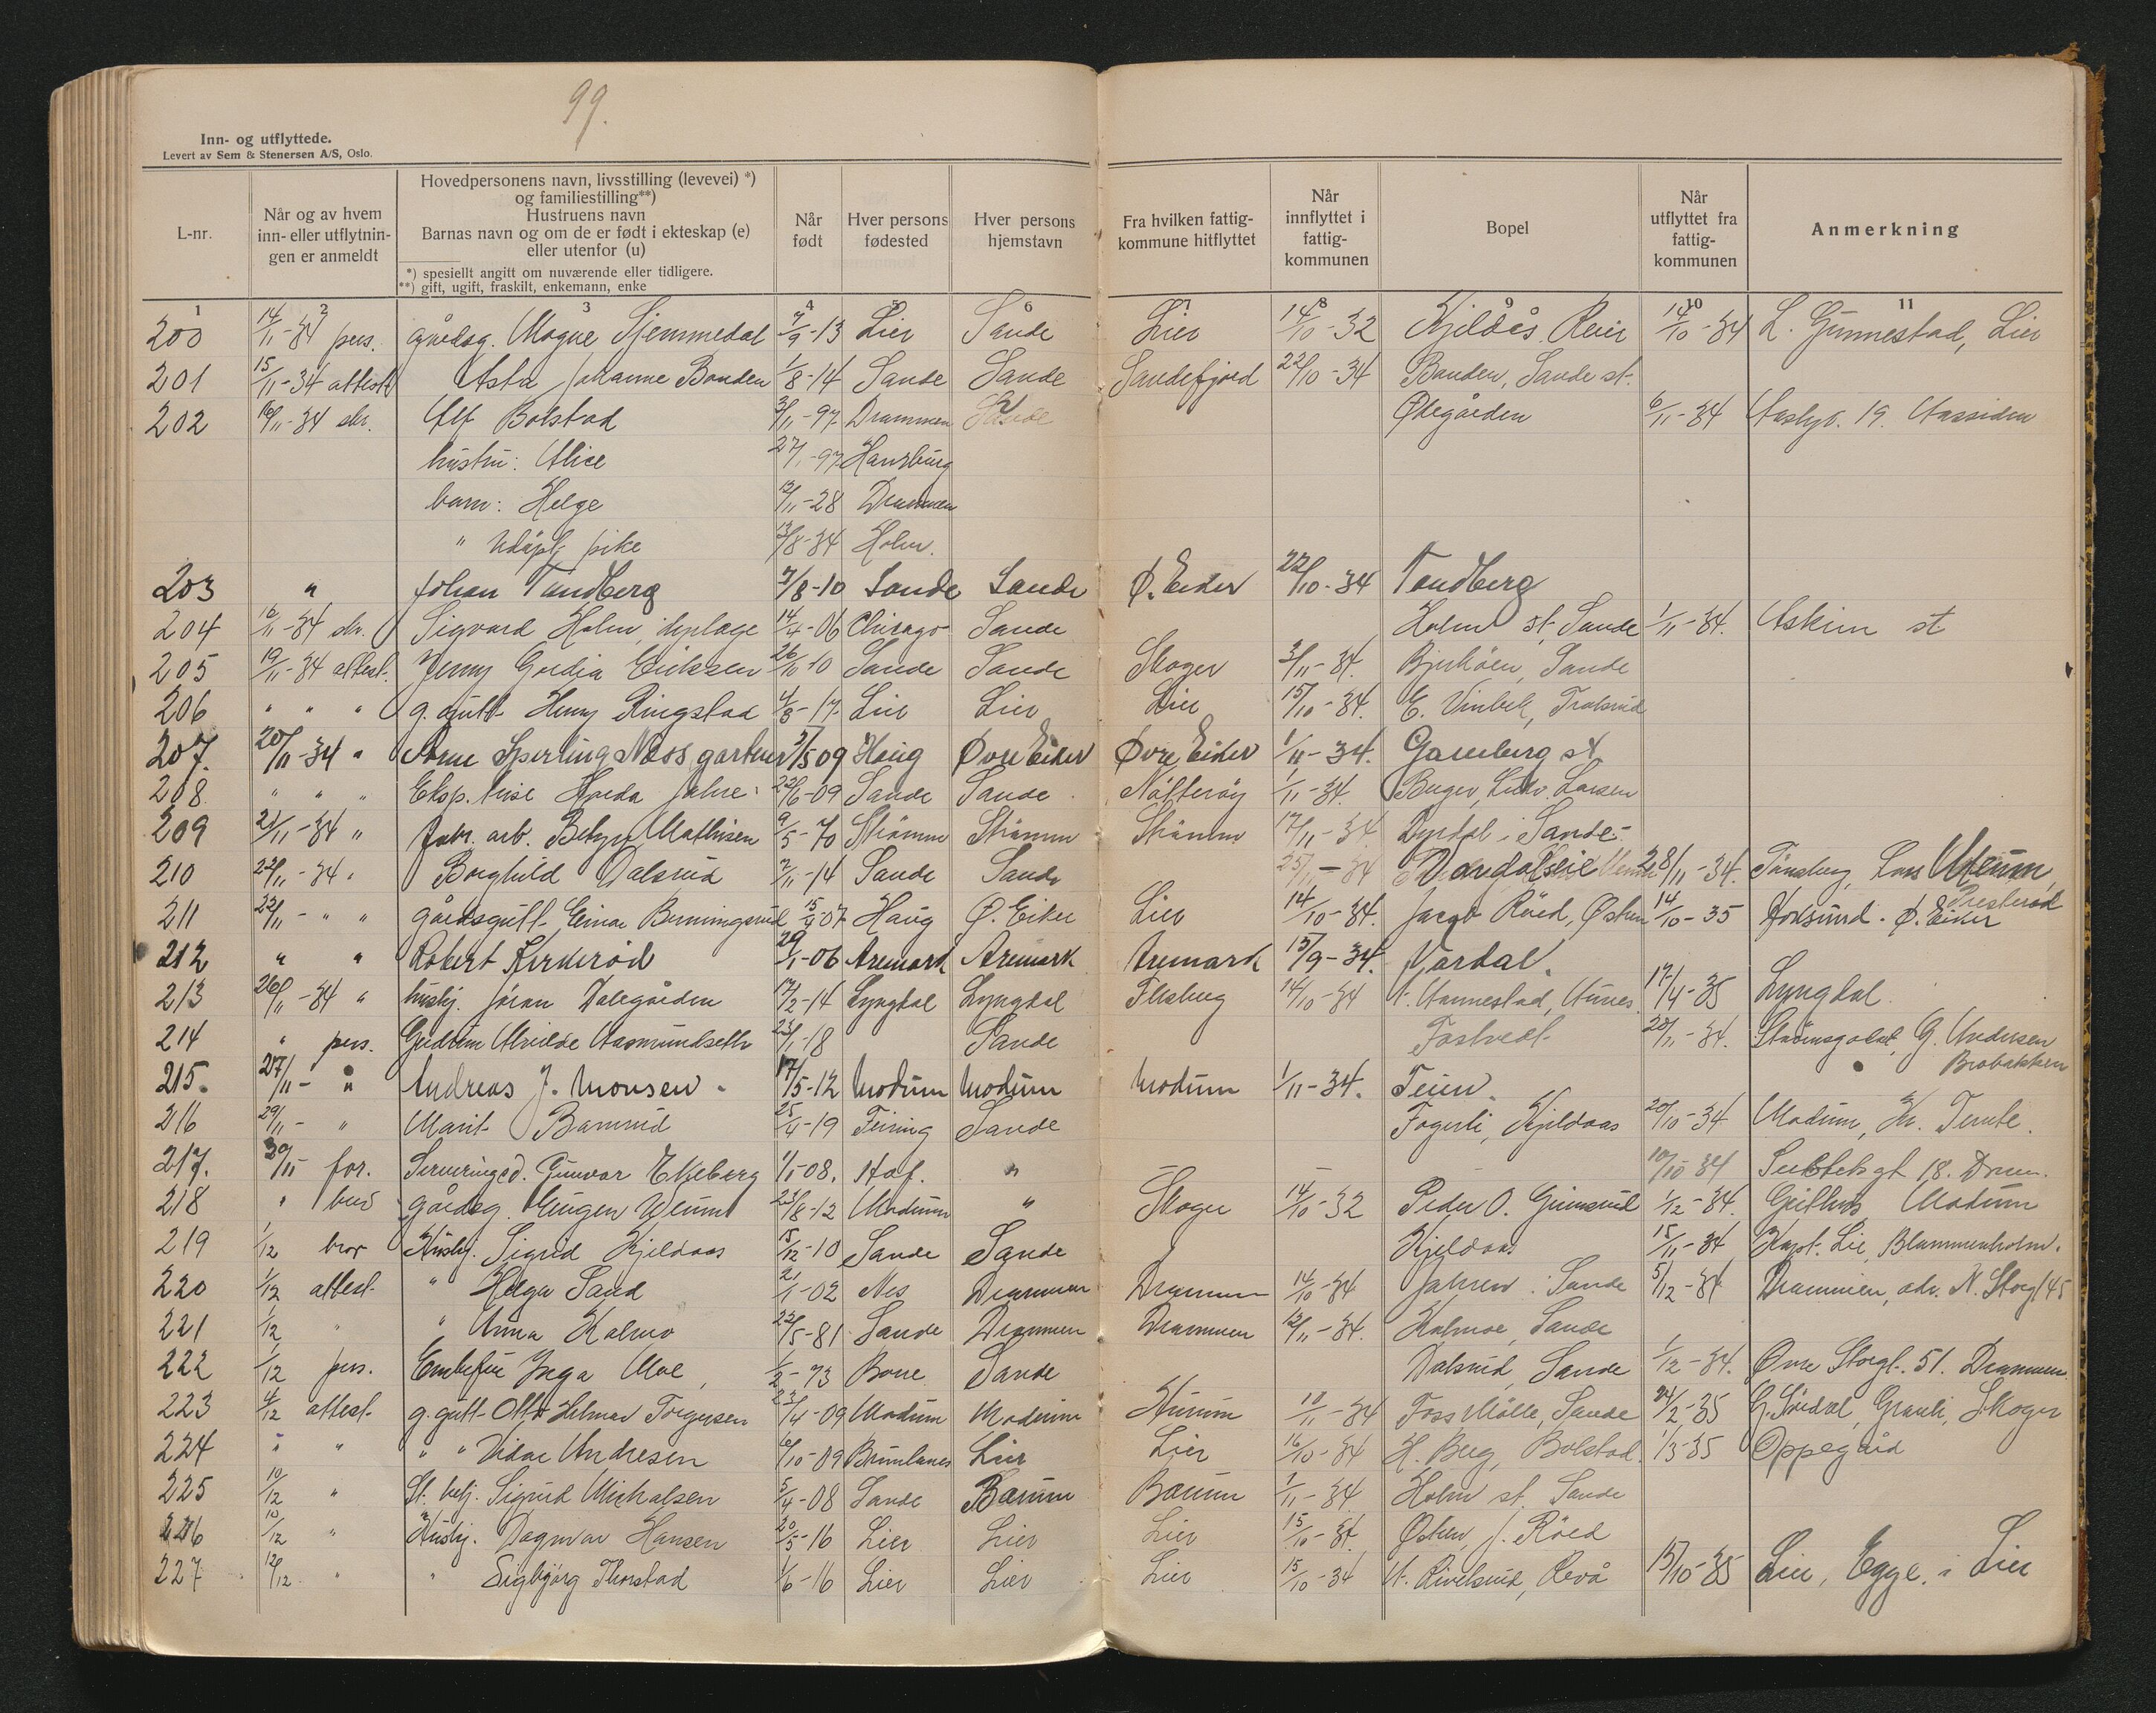 99.
Inn- og utflyttede.
Levert av Sem & Stenersen A/S, Oslo.
L-nr.
Når og av hvem inn- eller utflytnin-gen er anmeldt
Hovedpersonens navn, livsstilling (levevei) *) og familiestilling**) Hustruens navn Barnas navn og om de er født i ekteskap (e) eller utenfor (u)
*) spesiellt angitt om nuværende eller tidligere.
**) gift, ugift, fraskilt, enkemann, enke
Når født
Hver persons fødested
Hver persons hjemstavn
Fra hvilken fattig-kommune hitflyttet
Når innflyttet i fattig-kommunen
Bopel
Når utflyttet fra fattig-kommunen
Anmerkning
1 2 3 4 5 6 7 8 9 10 11
200 14/11-34 pers. gårdsg. Magne Sjemmedal 7/9-13 Lier Sande Lier 14/10-32 Kjeldås Reier 14/10-34 L. Gunnestad, Lier
201 15/11-34 attest Asta Johanne Banden 1/8-14 Sande Sande Sandefjord 22/10-34 Banden, Sande st.
202 16/11-34 skr. Alf Bolstad 3/11-97 Drammen Sande Ødegården 6/11-34 19. Aassiden
hustru: Alice 27/1-97 Hamburg
barn: Helge 12/11-28 Drammen
" Udøpt pike 13/8-34 Holm.
203 " Johan Tandberg 7/8-10 Sande Sande Ø. Eiker 22/10-34 Tandberg
204 16/11-34 skr. Sigvard Holm, 14/4-06 Chicago Sande Holm st, Sande 1/11-34. Askim st
205 19/11-34 attest. Jenny Gerdia Eriksen 26/11-10 Sande Sande Skoger 3/11-34. Bjerkåen, Sande
206 " " " g. gutt Henry Ringstad 4/8-17 Lier Lier Lier 15/10-34. E. Vinbek,
207. 20/11-34 " Arne Sperling Næss gartner 5/5 09 Haug Øvre Eiker Øvre Eiker 1/11-34. Galleberg st
208 " " " Eksp. Horda Jahre 22/6-09 Sande Sande Nøtterøy 1/11-34. Berger, Ludv. Larsen
209 21/11-34 " fabr. arb. Betzy Mathisen 9/5-70 Strømm Strømm Strømm 17/11-34 Dyrdal i Sande
210 22/11-34 " Borghild Dalsrud 7/11-14 Sande Sande 25/11-34 28/11-34. Tønsberg, Lars Unum, Presterød
211 22/11- " " gårdsgutt Einar Benningsrud 15/9-07 Haug Ø. Eiker Lier 14/10-34. Jacob Røed, Østen 14/10-35 Hokksund. Ø. Eiker
212 " " Robert Kirkerød 29/1-06 Aremark Aremark Aremark 15/9-34. Nordal.
213 26/11-34 " hushj. Jöran Dalegården 17/2-14 Lyngdal Lyngdal Flesberg 14/10-34 A. Aannestad, 17/4-35 Lyngdal.
214 " pers. Gudrun Alvilde Aasmundseth 23/1-18 Sande Fostvedt 20/11-34. G. Andersen Brobakken
215. 27/11- " Andreas J. Monsen. 17/5-12 Modum Modum Modum 1/11-34. Teien.
216 29/11- " Marit Bamrud 25/4-19 Feiring Sande Fagerli, Kjeldaas 20/10-34 Modum, Kr. Temte.
217. 30/11 for. Serveringsd. Gunvor Ekeberg 1/1 08. Hof. " 10/10 34 18. Dram.
218 " bud gårdsg. Eugen Werum 23/8-12 Modum " Skoger 14/10-32 Peder O. Grimsrud 1/12-34. Geithus Modum
219 1/12 bror Hushj. Sigrid Kjeldaas 15/12-10 Sande Sande Kjeldaas 15/11-34 Kapt. Lie, Blommenholm.
220 1/12 attest. " Helga Sand 21/1-02 Nes Drammen Drammen 14/10-34 Jahren i Sande 5/12-34 Drammen, adr. N. Storgt 45
221 1/12 " " Anna Kalmo 22/5-81 Sande Drammen Drammen 12/11-34. Kalmoe, Sande
222 1/12 pers. Enkefru Inga Moe, 1/2-73 Borre Sande Dalsrud, Sande 1/12-34. Øvre Storgt. 51. Drammen.
223 4/12 attest. g. gutt Otto Hilmar Torgersen 23/4-09 Modum Modum Hurum 18/11-34 Foss Mölle, Sande 24/2-35 G. Sørdal, Granli, Skoger
224 " " " " Vidar Andresen 6/10-09 Brunlanes Lier Lier 16/10-34 H. Berg, Bolstad. 1/3-35 Oppegård
225 10/12 " St. betj. Sigurd Michalsen 3/4-08 Sande Bærum Bærum 1/11-34. Holm st. Sande
226 10/12 " Hushj. Dagmar Hansen 20/5-16 Lier Lier Lier 15/10-34. Østen, J. Röed
227 12/12 " " Sigbjörg Thorstad 1/6-16 Lier Lier Lier 15/10-34 A. Rivelsrud, Revå 15/10-35 Lier, Egge. i Lier